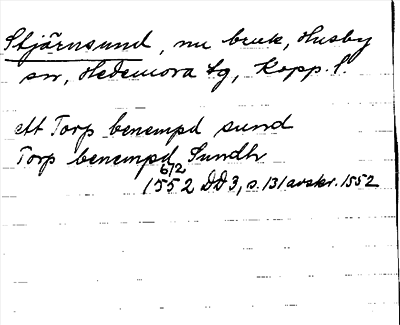 Stjärnsund, nu bruk, Husby
sn, Hedemora tg, Kopp. l.
ett Torp benempd sund
Torp benempd Sundh
6/2
1552 DD3, s. 131 avskr. 1552